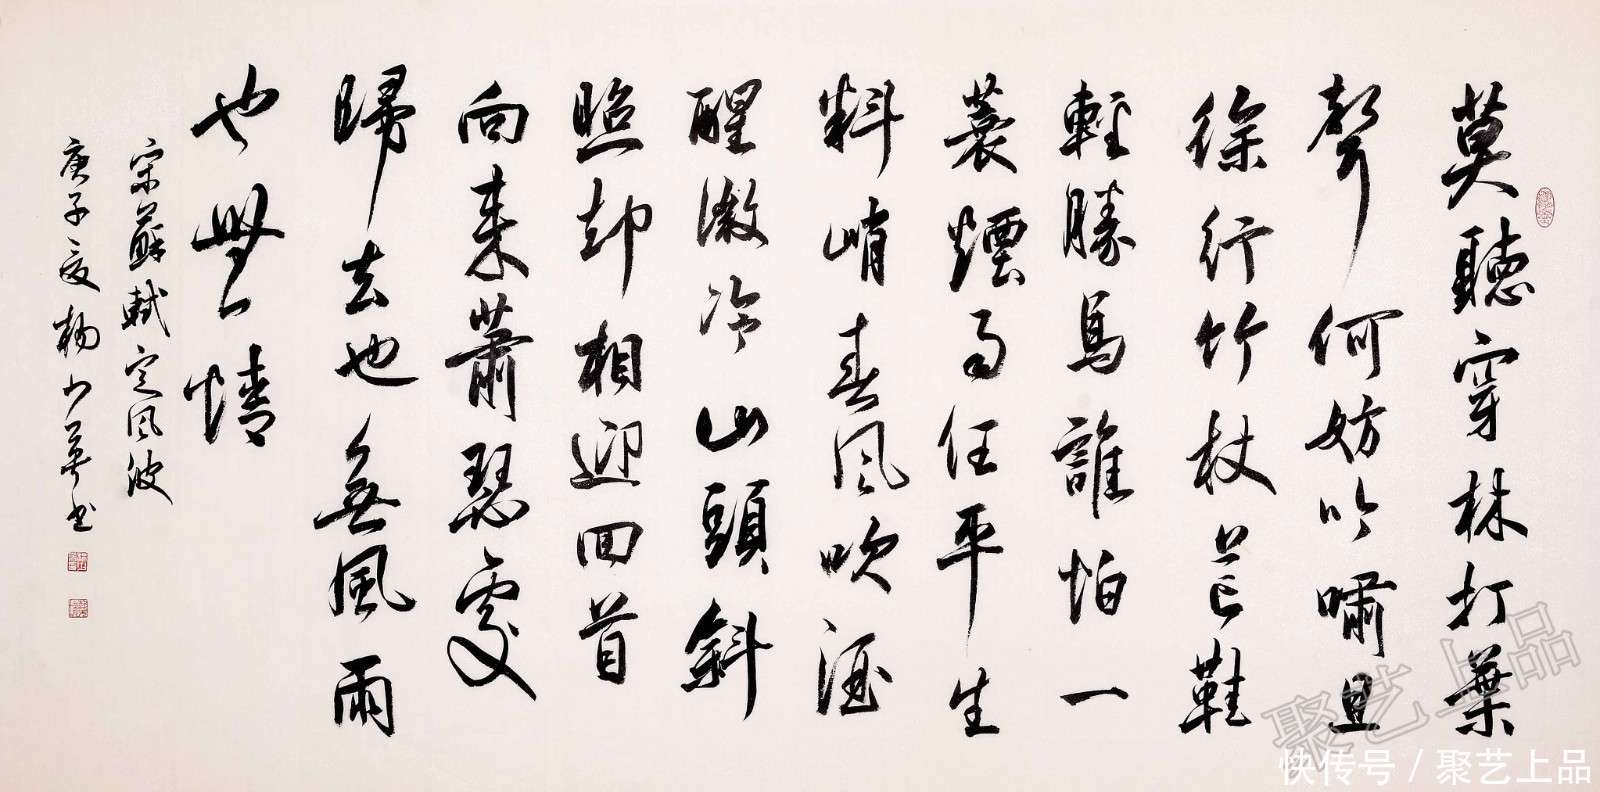 莫聽穿林打葉
聲何妨吟嘯且
徐行竹杖芒鞋
輕勝馬誰怕一
蓑煙雨任平生
料峭春风吹酒
醒微冷山頭斜
照却相迎回首
向来蕭瑟處
歸去也無風雨
也無晴
宋蘇軾定风波
庚子夏书
聚艺上品
快传号/聚艺上品